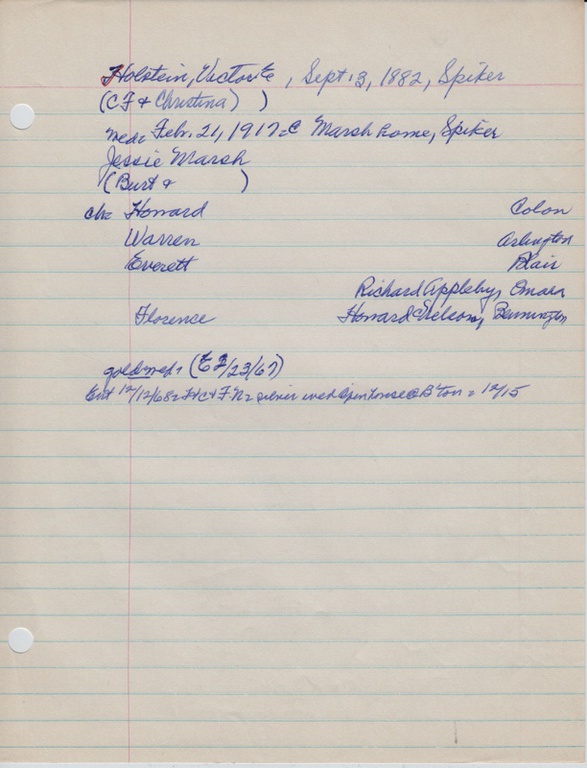 Holstein, Victor E, Sept 13, 1882, Spiker
(CF & Christina) )
wed: Febr. 21, 1917 @ Marsh home, Spiker
Jessie Marsh
(Burt & )
ch: Howard Colon
Warren Arlington
Everett Blair
Richard Appleby, Omaha
Florence Howard C Nelson, Bennington
gold wed: (E 2/23/67)
Ent 12/12/68 = H C & F N = silver wed open house @ B'ton = 12/15